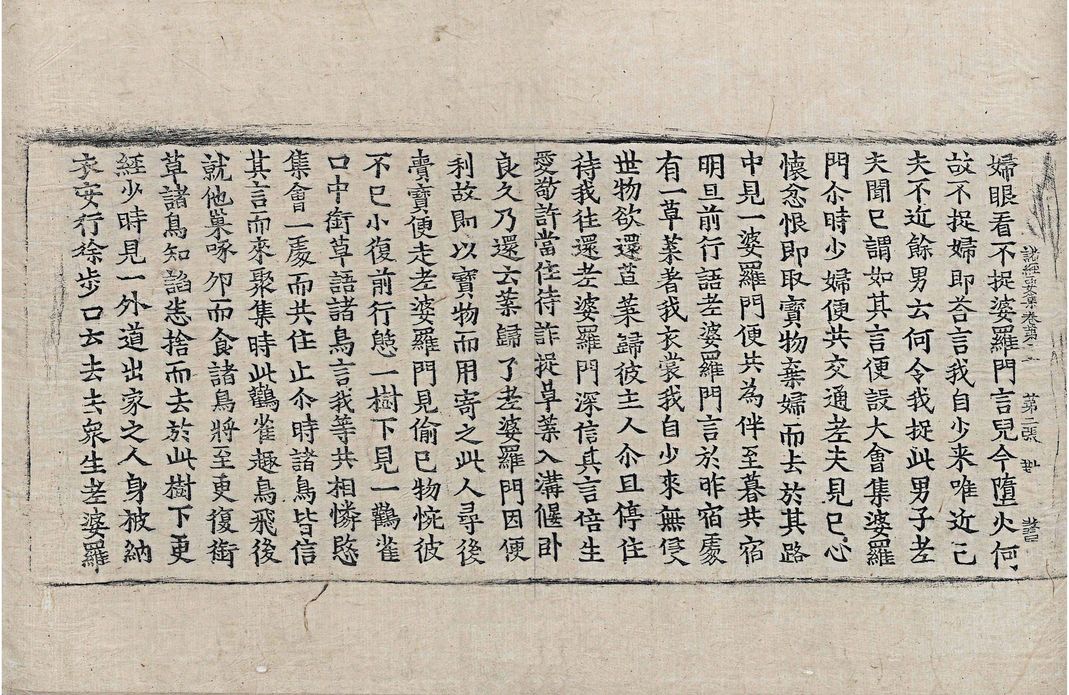 諸經要集卷第
婦眼看不捉婆羅門言兒今墮火何
故不捉婦即荅言我自少来唯近己
夫不近餘男云何令我捉此男子老
夫聞已謂如其言便設大會集婆羅
門尒時少婦便共交通老夫見已心
懷忿恨即取寶物棄婦而去於其路
中見一婆羅門便共為伴至暮共宿
明旦前行語老婆羅門言於昨宿處
有一草葉著我衣裳我自少來無侵
世物欲還草葉歸彼主人尒且停住
待我往還老婆羅門深信其言倍生
愛敬許當住待詐捉草葉入溝偃卧
良久乃還云葉歸了老婆羅門因便
利故即以寶物而用寄之此人尋後
賷寶便走老婆羅門見偷已物惋彼
不已小復前行憇一樹下見一鸛雀
口中銜草語諸鳥言我等共相憐愍
集會一處而共住止尒時諸鳥皆信
其言而來聚集時此鸛雀趣鳥飛後
就他巢啄卵而食諸鳥將至更復銜
草諸鳥知諂悉捨而去於此樹下更
經少時見一外道出家之人身被納
衣安行徐步口云去去衆生老婆羅